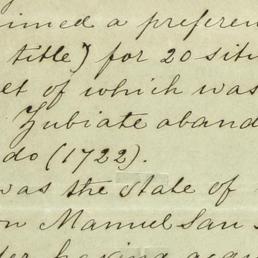 imed a preferen
title) for 20 situ
et of which was
Zubiate aband
do (1722).
was the state of
on Manuel San